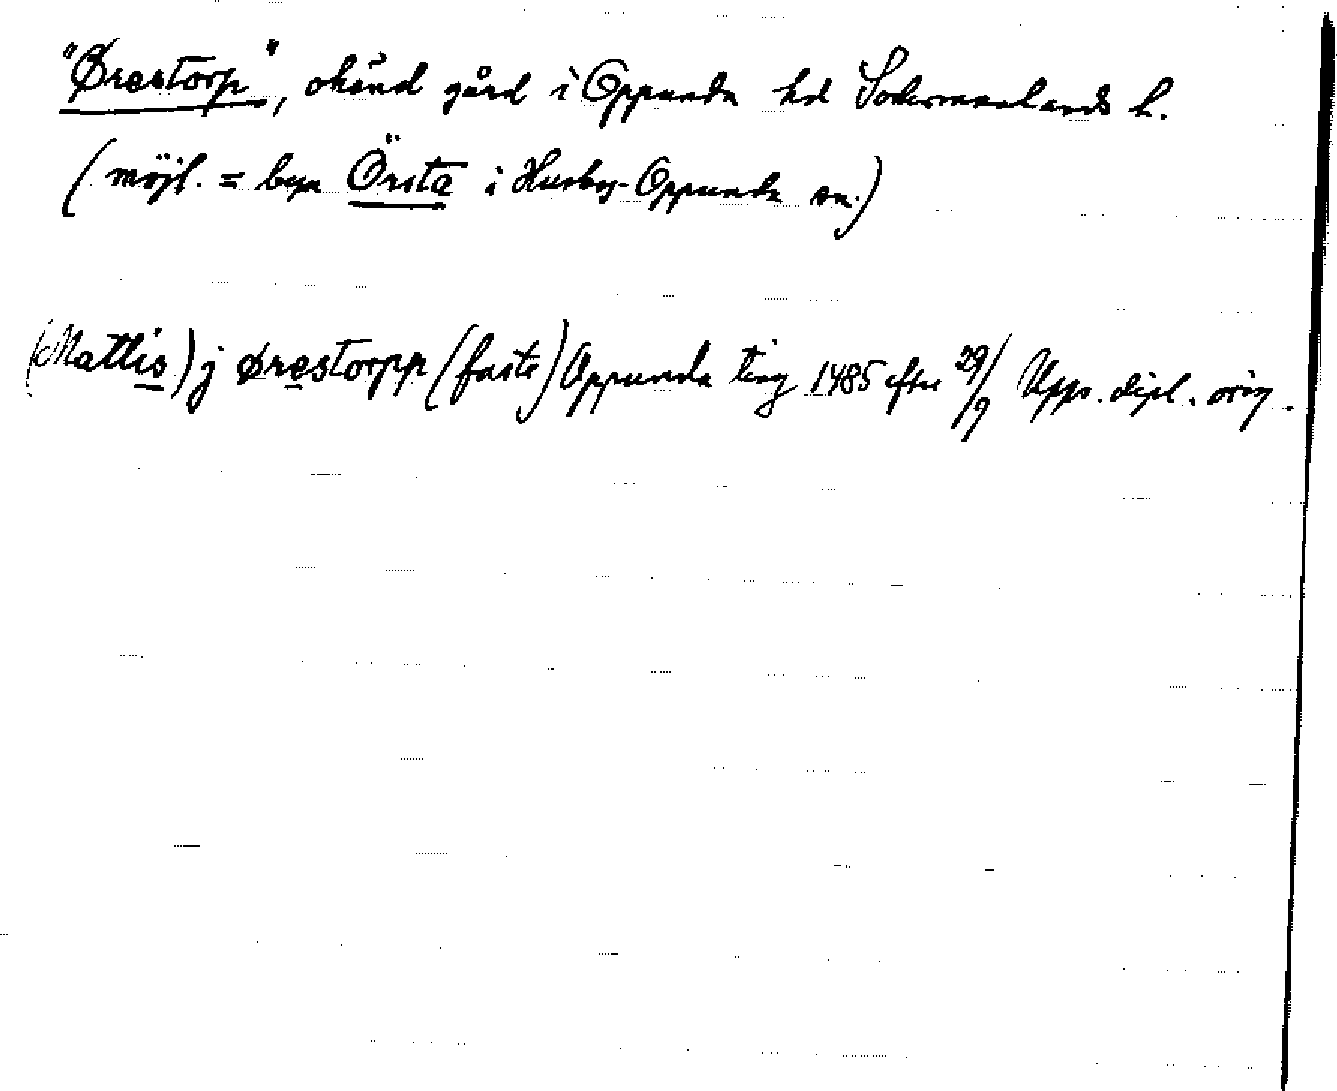 "Ørestorp", okänd gård i Oppunda hd Södermanlands l.
(möjl. = byn Örsta i Husby-Oppunda sn.)
(Mattis) j ørestorpp (faste) Oppunda ting 1485 efter 29/9 Upps. dipl. orig.